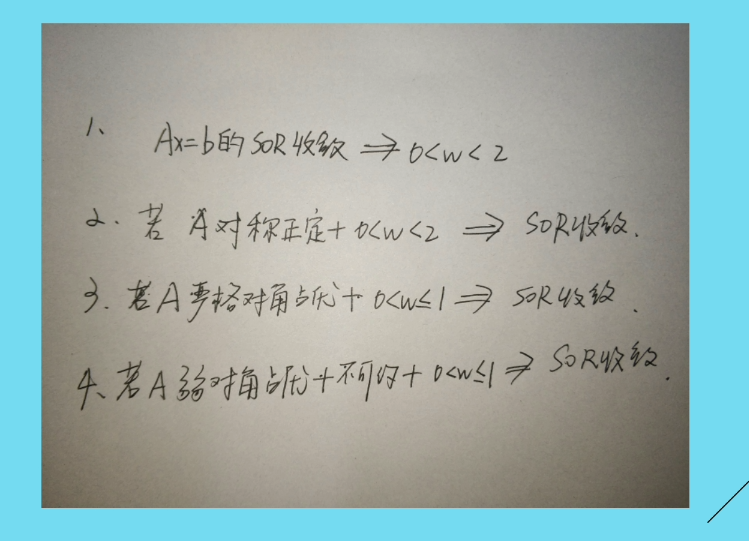 1、 Ax=b的SOR收敛 ⇒ 0<w<2
2. 若 A对称正定+ 0<w<2 ⇒ SOR收敛.
3. 若A严格对角占优+ 0<w≤1 ⇒ SOR收敛.
4、若A弱对角占优+不可约+ 0<w≤1 ⇒ SOR收敛.